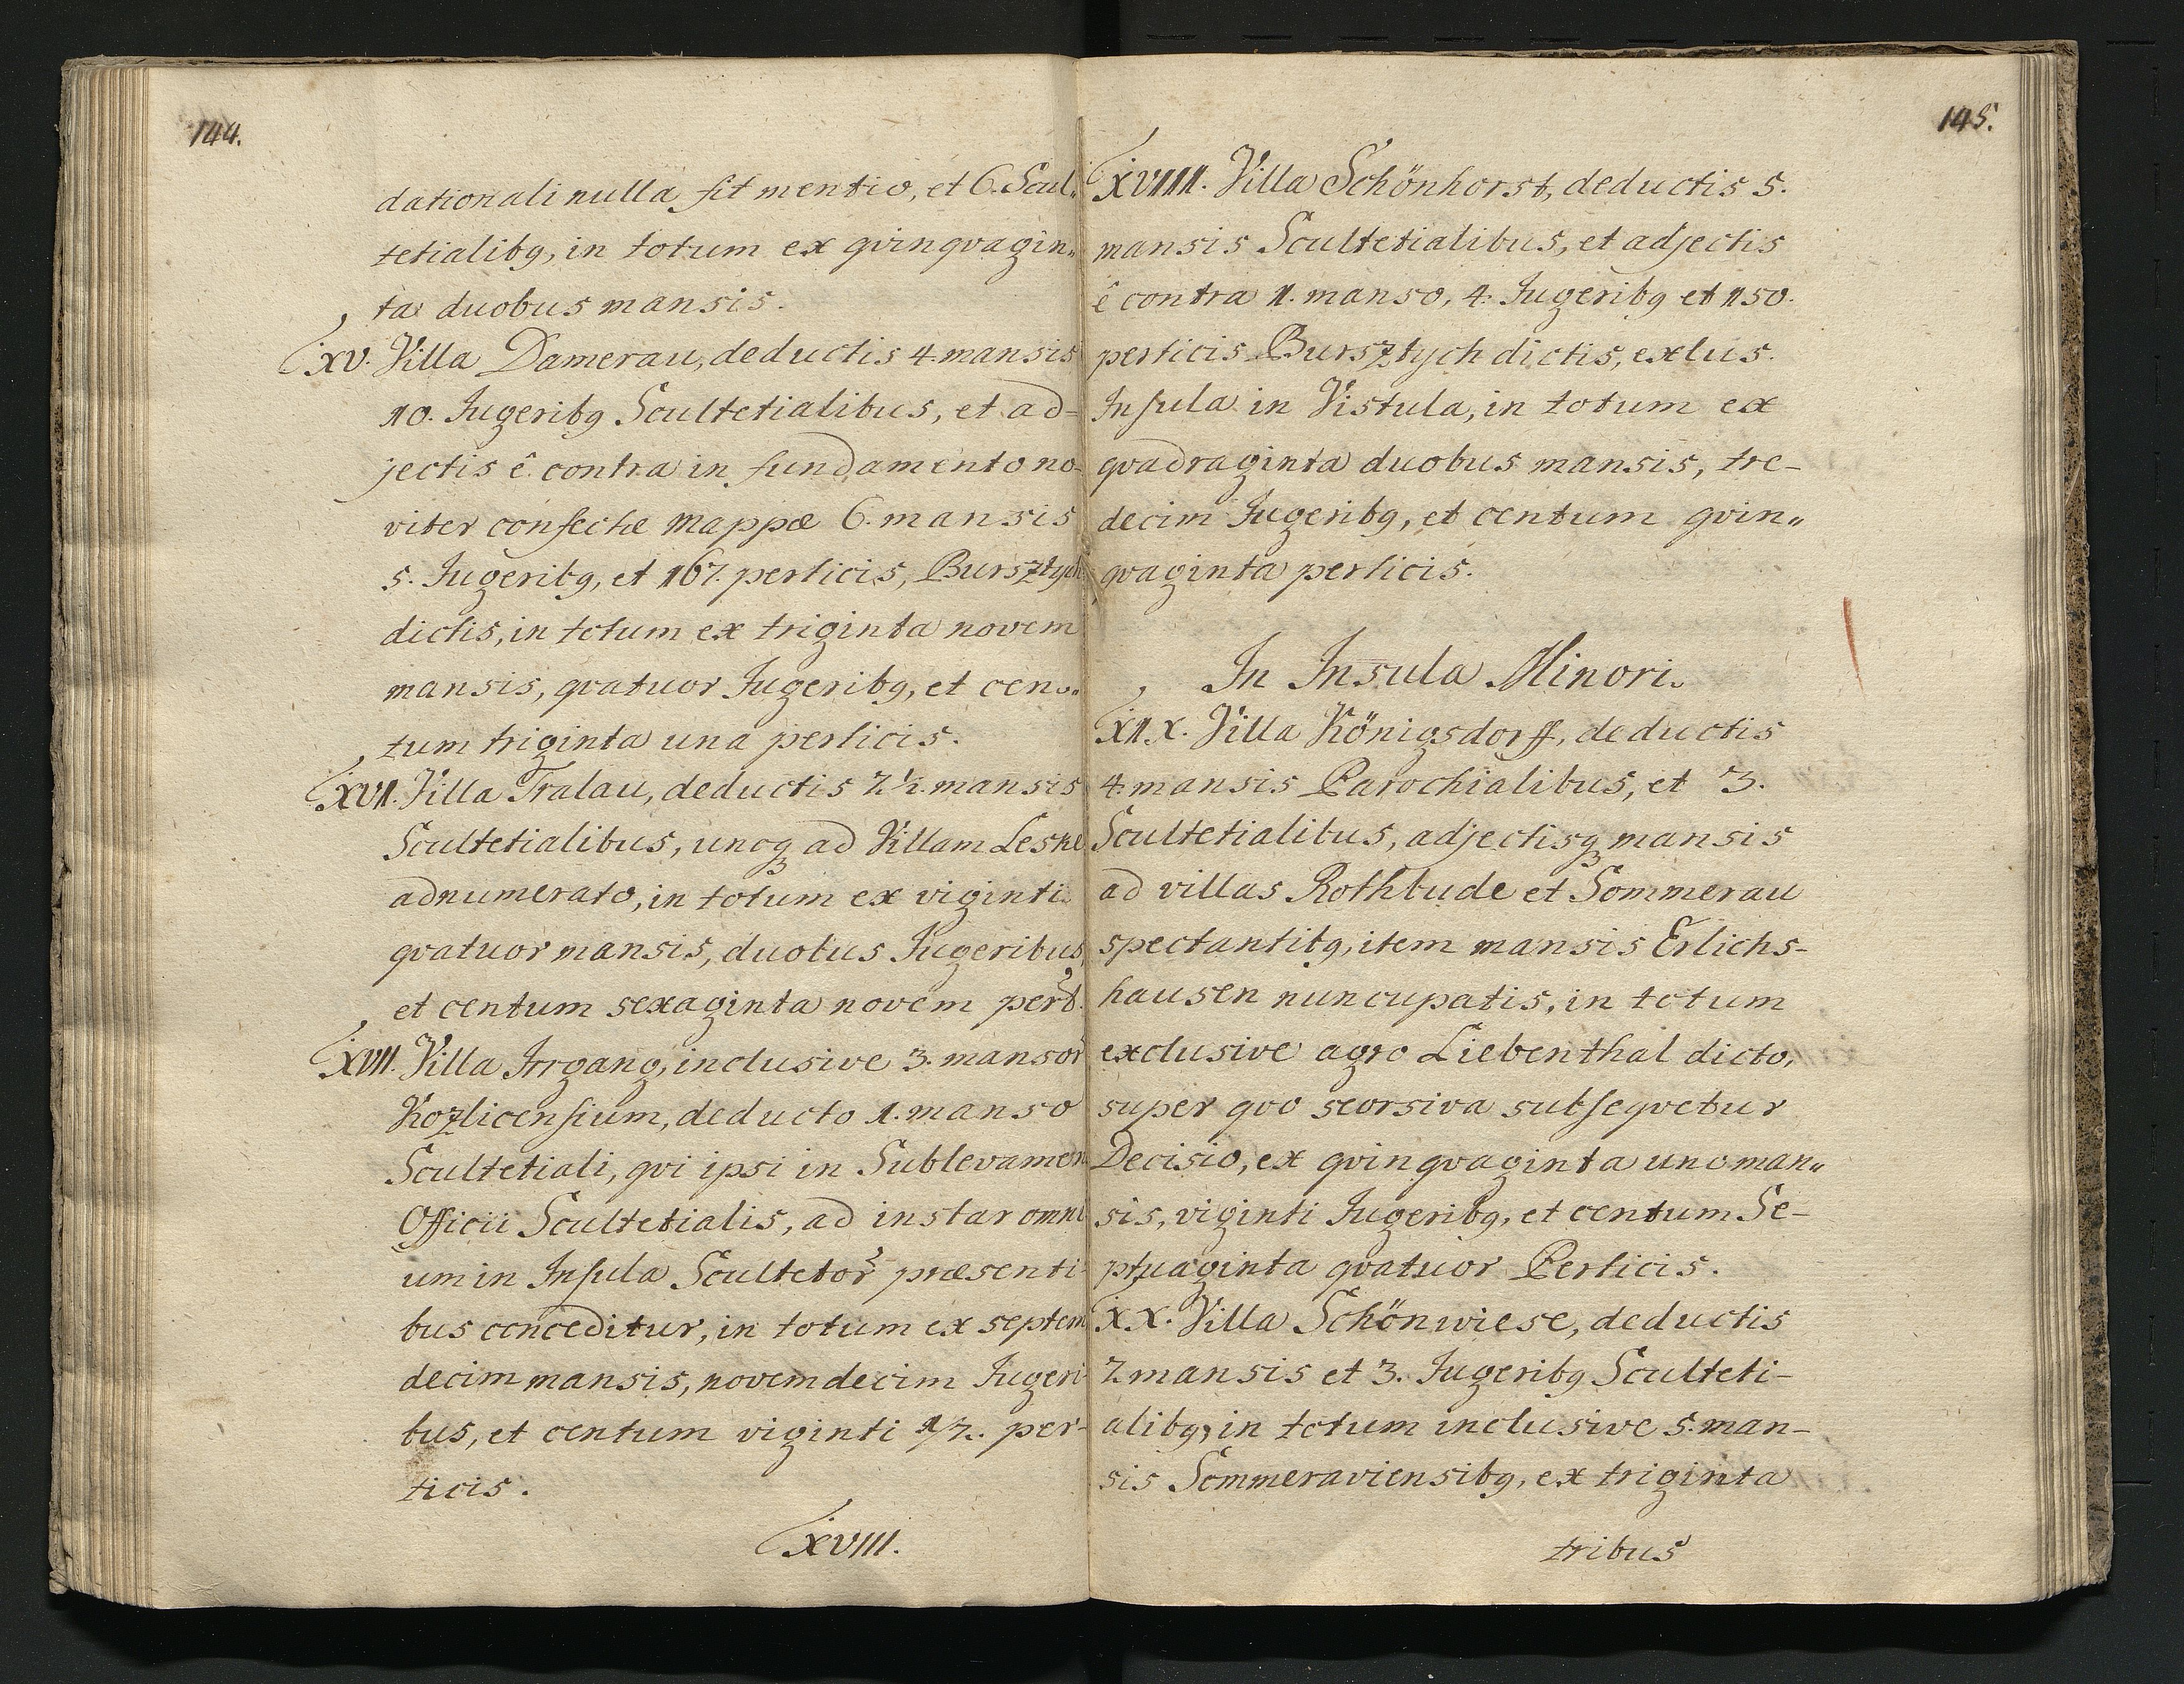 144.
dationali nulla fit mentio, et 6. Scul„
tetialibꝫ, in totum ex qvinqvagin„
ta duobus mansis.
XV. Villa Damerau, deductis 4. mansis
10. Jugeribꝫ Scultetialibus, et ad-
jectis ê contra in fundamento no-
viter confectæ Mappæ 6. mansis
5. Jugeribꝫ, et 167. perticis, Bursztych
dictis, in totum ex triginta novem
mansis, qvatuor Jugeribꝫ, et cen„
tum triginta una perticis.
XVI. Villa Tralau, deductis 2 ½. mansis
Scultetialibus, unoqꝫ ad Villam Leske
adnumerato, in totum ex viginti
qvatuor mansis, duobus Jugeribus,
et centum sexaginta novem pert.
XVII. Villa Irrgang, inclusive 3. mansor
Kozlicensium, deducto 1. manso
Scultetiali, qvi ipsi in Sublevamen
Officii Scultetialis, ad instar omni
um in Insula Scultetor præsenti-
bus conceditur, in totum ex septem
decim mansis, novemdecim Jugeri-
bus, et centum viginti 1/2. per-
ticis.
XVIII.
145.
XVIII. Villa Schönhorst, deductis 5.
mansis Scultetialibus, et adjectis
ê contra 1. manso, 4. Jugeribꝫ et 150.
perticis Bursztych dictis, exlus.
Insula in Vistula, in totum ex
qvadraginta duobus mansis, tre-
decim Jugeribꝫ, et centum qvin„
qvaginta perticis.
In Insula Minori.
XIX. Villa Königsdorff, deductis
4 mansis Parochialibus, et 3.
Scultetialibus, adjectisqꝫ mansis
ad villas Rothbude et Sommerau
spectantibꝫ, item mansis Erlichs-
hausen nuncupatis, in totum
exclusive agro Liebenthal dicto,
super qvo seorsiva subseqvetur
Decisio, ex qvinqvaginta uno man„
sis, viginti Jugeribꝫ, et centum Se-
ptuaginta qvatuor Perticis.
XX. Villa Schönwiese, deductis
2 mansis et 3. Jugeribꝫ Sculteti-
alibꝫ, in totum inclusive 5. man-
sis Sommeraviensibꝫ, ex triginta
tribus